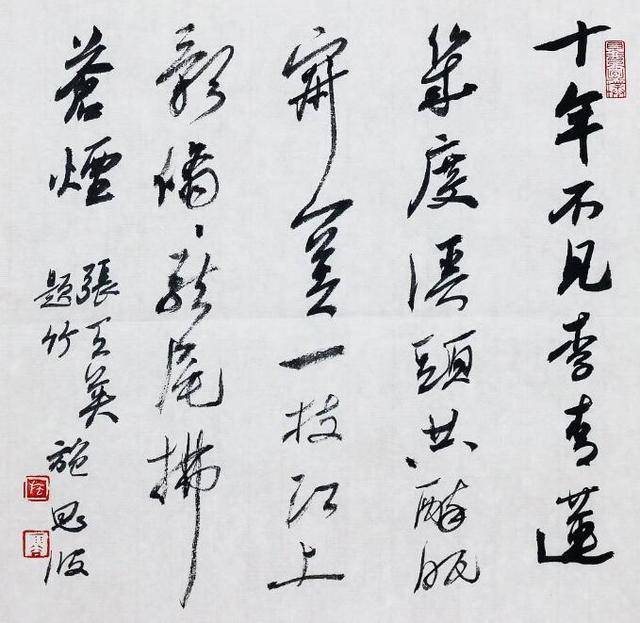 十年不見李青蓮
幾度溪頭共醉眠
一枝江上
影翛翛龍尾拂
蒼煙
張天英
題竹
施恩波